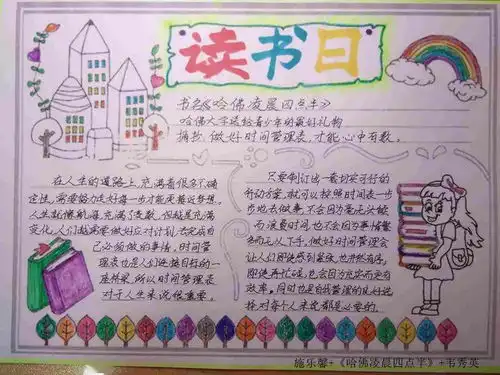 读书日
书名《哈佛凌晨四点半》
哈佛大学送给青少年的最好礼物
摘抄:做好时间管理表,才能心中有数。
在人生的道路上,充满着很多不确
定性,需要努力走好每一步才能更接近梦想。
人生就像航海,充满了变数,但越是充满
变化,人们越需要做好应对计划,去完成自
己必须做的事情,时间管
理表也是人们连接目标的一
座桥梁,所以时间管理表
对于人生来说很重要。
只要制订出一套切实可行的
行动方案,就可以按照时间表一步
步地去做事,不会因为毫无头绪
而浪费时间,也不会因为事情繁
多而无从下手,做好时间管理会
让人们即使感到紧张,也井然有序,
即使再忙碌,也会因为充实而更有
效率。同时也是自我管理的良好选
择,对每个人来说都是必要的。
施乐馨+《哈佛凌晨四点半》+韦秀英